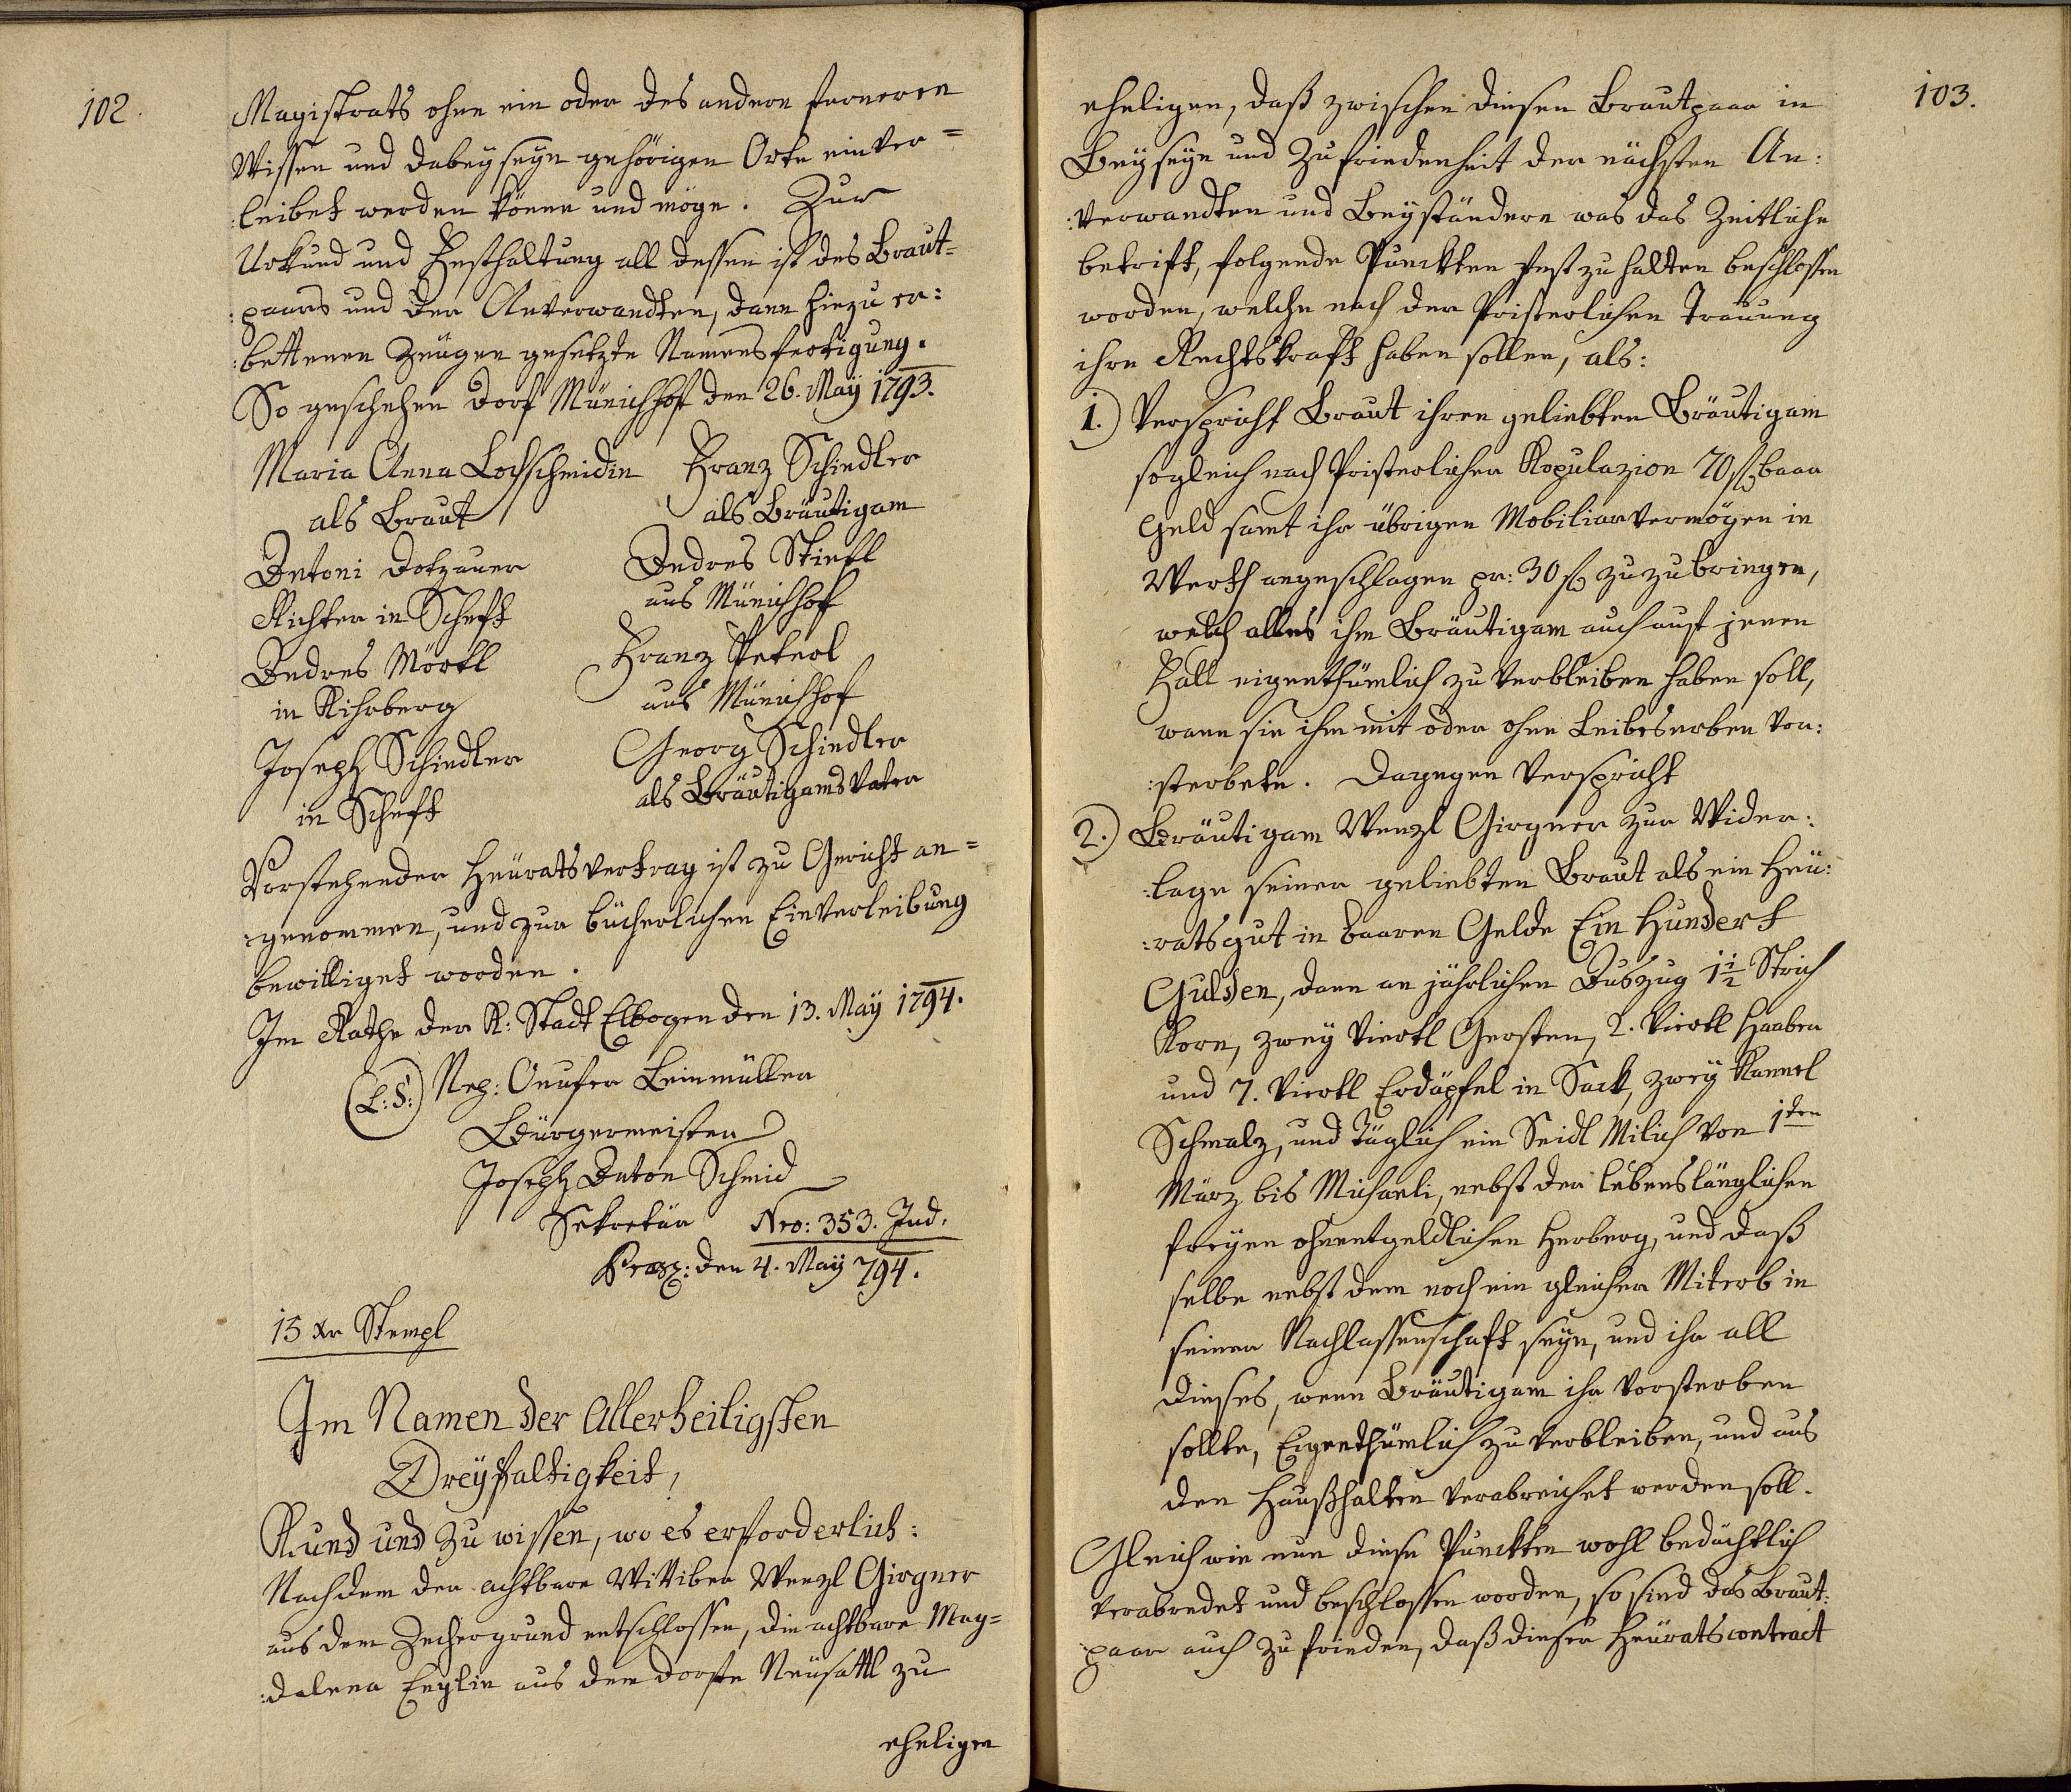 102.
Magistrats ohne ein oder des andern ferneren
Wissen und dabeyseyn gehörigen Orts einver=
:leibet werden könne und möge. Zur
Urkund und Festhaltung all dessen ist des Braut=
:paars und der Anverwandten, dann hiezu er:
:bettenen Zeugen gesetzte Namensfertigung.
So geschehen Dorf Münichhof den 26. May 1793.
Maria Anna Lochschmidin Franz Schindler
als Braut als Bräutigam
Antoni Dotzauer Andres Stiefl
Richter in Schaft aus Münichhof
Andres Mörtl Franz Peterl
in Kihrberg aus Münichhof
Joseph Schindler Georg Schindler
in Schaft als Bräutigams Vater
Vorstehender Heüratsvertrag ist zu Gericht an=
:genommen, und zur bücherlichen Einverleibung
bewilliget worden.
Im Rathe der K: Stadt Elbogen den 13. May 1794.
(L:S:) Nep: Onufer Leinmüller
Bürgermeister
Joseph Anton Schmid
Sekretär Nro: 353. Jud.
Praes: den 4. May 794.
15 Xr Stempl
Im Namen der Allerheiligsten
Dreyfaltigkeit,
Kund und zu wissen, wo es erforderlich:
Nachdem der achtbare Wittiber Wenzl Girgner
aus dem Zechergrund entschlossen, die achtbare Mag=
:dalena Englin aus dem Dorfe Neüsattl zu
eheligen
103.
eheligen, daß zwischen diesen Brautpaar in
Beyseyn und Zufriedenheit der nächsten An:
:verwandten und Beyständern was das Zeitliche
betrift, folgende Punckten fest zu halten beschlossen
worden, welche nach der Pristerlichen Trauung
ihre Rechtskraft haben sollen, als:
1.) Verspricht Braut ihren geliebten Bräutigam
sogleich nach Pristerlicher Kopulazion 70 f baar
Geld samt ihr übrigen Mobiliarvermögen in
Werth angeschlagen pr: 30 f zuzubringen,
welch alles ihm Bräutigam auch auf jenen
Fall eigenthümlich zu verbleiben haben soll,
wann sie ihm mit oder ohne Leibeserben vor:
:sterbete. Dagegen verspricht
2.) Bräutigam Wenzl Girgner zur Wider:
:lage seiner geliebten Braut als ein Heü:
:ratsgut in baaren Gelde Ein Hundert
Gulden, dann an jährlichen Auszug 1 1/2 Strich
Korn, zwey Viertl Gersten, 2. Viertl Haaber
und 7. Viertl Erdäpfel in Sack, zwey Kannel
Schmalz, und täglich ein Seidl Milich von 1ten
März bis Michaeli, nebst der lebenslänglichen
freyen ohnentgeldlichen Herberg, und daß
selbe nebst dem noch ein gleicher Miterb in
seiner Nachlassenschaft seyn, und ihr all
dieses, wenn Bräutigam ihr vorsterben
sollte, Eigenthümlich zu verbleiben, und aus
den Haußhalten verabreichet werden soll.
Gleich wie nun diese Punckten wohl bedächtlich
verabredet und beschlossen worden, so sind das Braut:
:paar auch zufrieden, daß dieser Heüratscontract